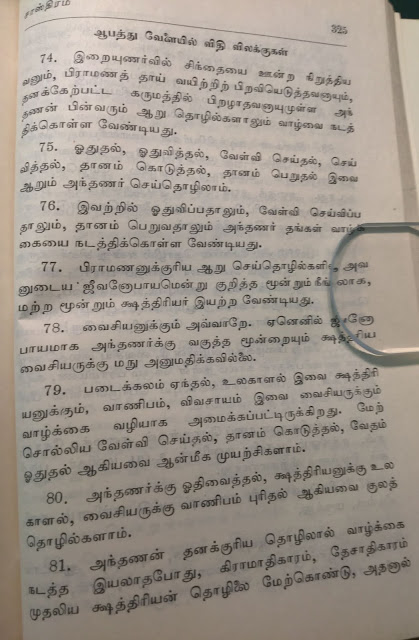 சாஸ்திரம்
325
ஆபத்து வேளையில் விதி விலக்குகள்
74. இறையுணர்வில் சிக்தையை ஊன்ற நிறுத்திய
வனும், பிராமணத் தாய் வயிற்றிற் பிறவியெடுத்தவனாயும்,
தனக்கேற்பட்ட கருமத்தில் பிறழாதவனாயுமுள்ள அந்
தணன் பின்வரும் ஆறு தொழில்களாலும் வாழ்வை நடத்
திக்கொள்ள வேண்டியது.
75. ஓதுதல், ஓதுவித்தல், வேள்வி செய்தல், செய்
வித்தல், தானம் கொடுத்தல், தானம் பெறுதல் இவை
ஆறும் அந்தணர் செய்தொழிலாம்.
76. இவற்றில் ஓதுவிப்பதாலும், வேள்வி செய்விப்ப
தாலும், தானம் பெறுவதாலும் அந்தணர் தங்கள் வாழ்க்
கையை நடத்திக்கொள்ள வேண்டியது.
77. பிராமணனுக்குரிய ஆறு செய்தொழில்களில், அவ
னுடைய ஜீவனோபாயமென்று குறித்த மூன்றும் நீங்கலாக,
மற்ற மூன்றும் க்ஷத்திரியர் இயற்ற வேண்டியது.
78. வைசியனுக்கும் அவ்வாறே. ஏனெனில் ஜீவனோ
பாயமாக அந்தணர்க்கு வகுத்த மூன்றையும் க்ஷத்திரிய
வைசியருக்கு மநு அனுமதிக்கவில்லை.
79. படைக்கலம் ஏந்தல், உலகாளல் இவை க்ஷத்திரி
யனுக்கும், வாணிபம், விவசாயம் இவை வைசியருக்கும்
வாழ்க்கை வழியாக அமைக்கப்பட்டிருக்கிறது. மேற்
சொல்லிய வேள்வி செய்தல், தானம் கொடுத்தல், வேதம்
ஓதுதல் ஆகியவை ஆன்மீக முயற்சிகளாம்.
80. அந்தணர்க்கு ஓதிவைத்தல், க்ஷத்திரியனுக்கு உல
காளல், வைசியருக்கு வாணிபம் புரிதல் ஆகியவை குலத்
தொழில்களாம்.
81. அந்தணன் தனக்குரிய தொழிலால் வாழ்க்கை
நடத்த இயலாதபோது, கிராமாதிகாரம், தேசாதிகாரம்
முதலிய க்ஷத்திரியன் தொழிலை மேற்கொண்டு, அதனால்